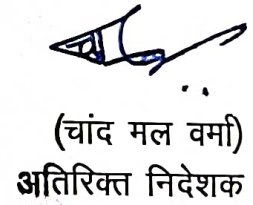 (चांद मल वर्मा)
अतिरिक्त निदेशक